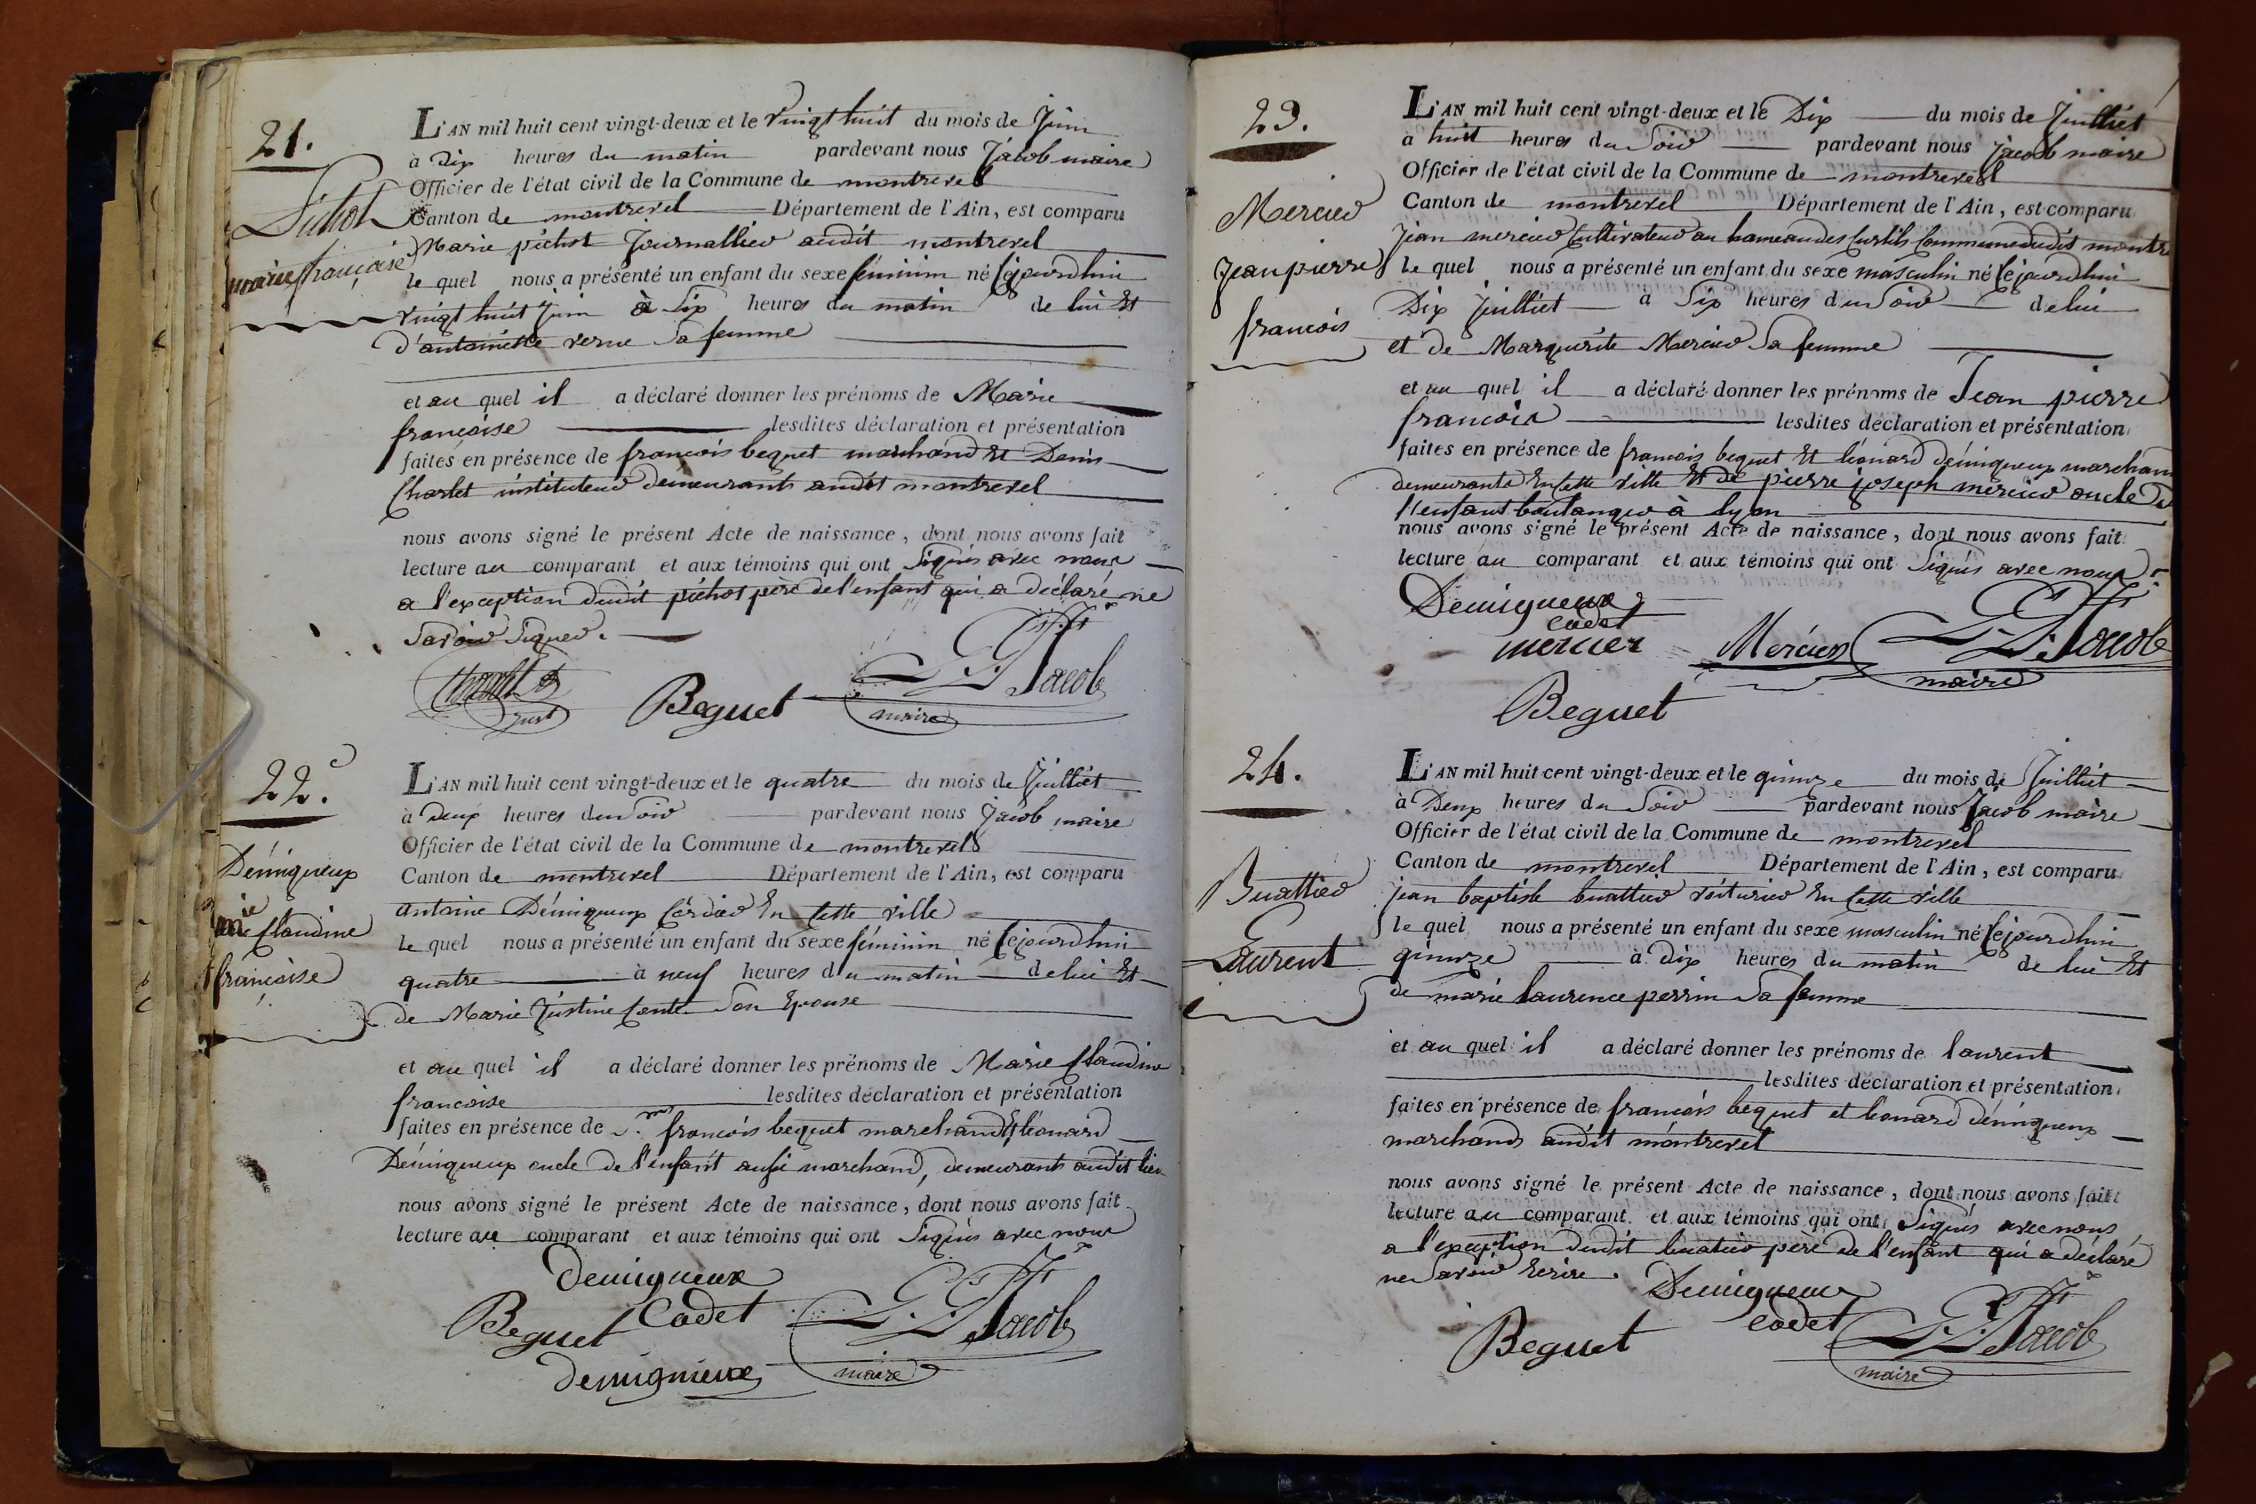 21.
Pichot
marie françoise
L'AN mil huit cent vingt-deux et le vingt huit du mois de Juin
à Dix heures du matin pardevant nous Jacob maire
Officier de l'état civil de la Commune de montrevel
Canton de montrevel Département de l'Ain, est comparu
Marie pichot Journallier audit montrevel
le quel nous a présenté un enfant du sexe féminin né cejourdhui
vingt huit Juin à Six heures du matin de lui Et
d'antoinette verne Sa femme
et au quel il a déclaré donner les prénoms de Marie
françoise lesdites déclaration et présentation
faites en présence de françois bequet marchand Et Denis
Charlet instituteur demeurants audit montrevel
nous avons signé le présent Acte de naissance, dont nous avons fait
lecture au comparant et aux témoins qui ont Signés avec nous
a l'exception dudit pichot père de l'enfant qui a déclaré ne
Savoir Signer.
Beguet
Jacob
maire
22.
Démiqueux
Marie Claudine
françoise
L'AN mil huit cent vingt-deux et le quatre du mois de Juilliet
à Deux heures du Soir pardevant nous Jacob maire
Officier de l'état civil de la Commune de montrevel
Canton de montrevel Département de l'Ain, est comparu
antoine Démiqueux Cordier En Cette ville
le quel nous a présenté un enfant du sexe féminin né Cejourdhui
quatre à neuf heures du matin de lui Et
de Marie Justine Conte Son Epouse
et au quel il a déclaré donner les prénoms de Marie Claudine
françoise lesdites déclaration et présentation
faites en présence de S.r françois bequet marchand Et léonard
Démiqueux oncle de l'enfant aussi marchand, demeurants audit lieu
nous avons signé le présent Acte de naissance, dont nous avons fait
lecture au comparant et aux témoins qui ont Signés avec nous
Demiqueux
Cadet
Beguet
Jacob
Demignieux
maire
23.
Mercier
Jean pierre
françois
L'AN mil huit cent vingt-deux et le Dix du mois de Juilliet
à huit heures du Soir pardevant nous Jacob maire
Officier de l'état civil de la Commune de montrevel
Canton de montrevel Département de l'Ain, est comparu
Jean mercier Cultivateur au hameau des Curtils Commune dudit montre
le quel nous a présenté un enfant du sexe masculin né Cejourdhui
Dix Juilliet à Six heures du Soir de lui
et de Marguerite Mercier Sa femme
et au quel il a déclaré donner les prénoms de Jean pierre
françois lesdites déclaration et présentation
faites en présence de françois bequet Et léonard démiqueux marchan
demeurants En Cette ville Et de pierre joseph mercier oncle de
l'enfant boulanger à lyon
nous avons signé le présent Acte de naissance, dont nous avons fait
lecture au comparant et aux témoins qui ont Signés avec nous
Demiqueux
Cadet
mercier
Mercier
Jacob
maire
Beguet
24.
Buattier
Laurent
L'AN mil huit cent vingt-deux et le quinze du mois de Juilliet
à Deux heures du Soir pardevant nous Jacob maire
Officier de l'état civil de la Commune de montrevel
Canton de montrevel Département de l'Ain, est comparu
jean baptiste buattier voiturier En Cette ville
le quel nous a présenté un enfant du sexe masculin né Cejourdhui
quinze à dix heures du matin de lui Et
de marie laurence perrin Sa femme
et au quel il a déclaré donner les prénoms de laurent
lesdites déclaration et présentation
faites en présence de françois bequet et léonard démiqueux
marchands audit montrevel
nous avons signé le présent Acte de naissance, dont nous avons fait
lecture au comparant et aux témoins qui ont Signés avec nous
a l'exception dudit buatier père de l'enfant qui a déclaré
ne Savoir Ecrire.
Demiqueux
Cadet
Beguet
Jacob
maire